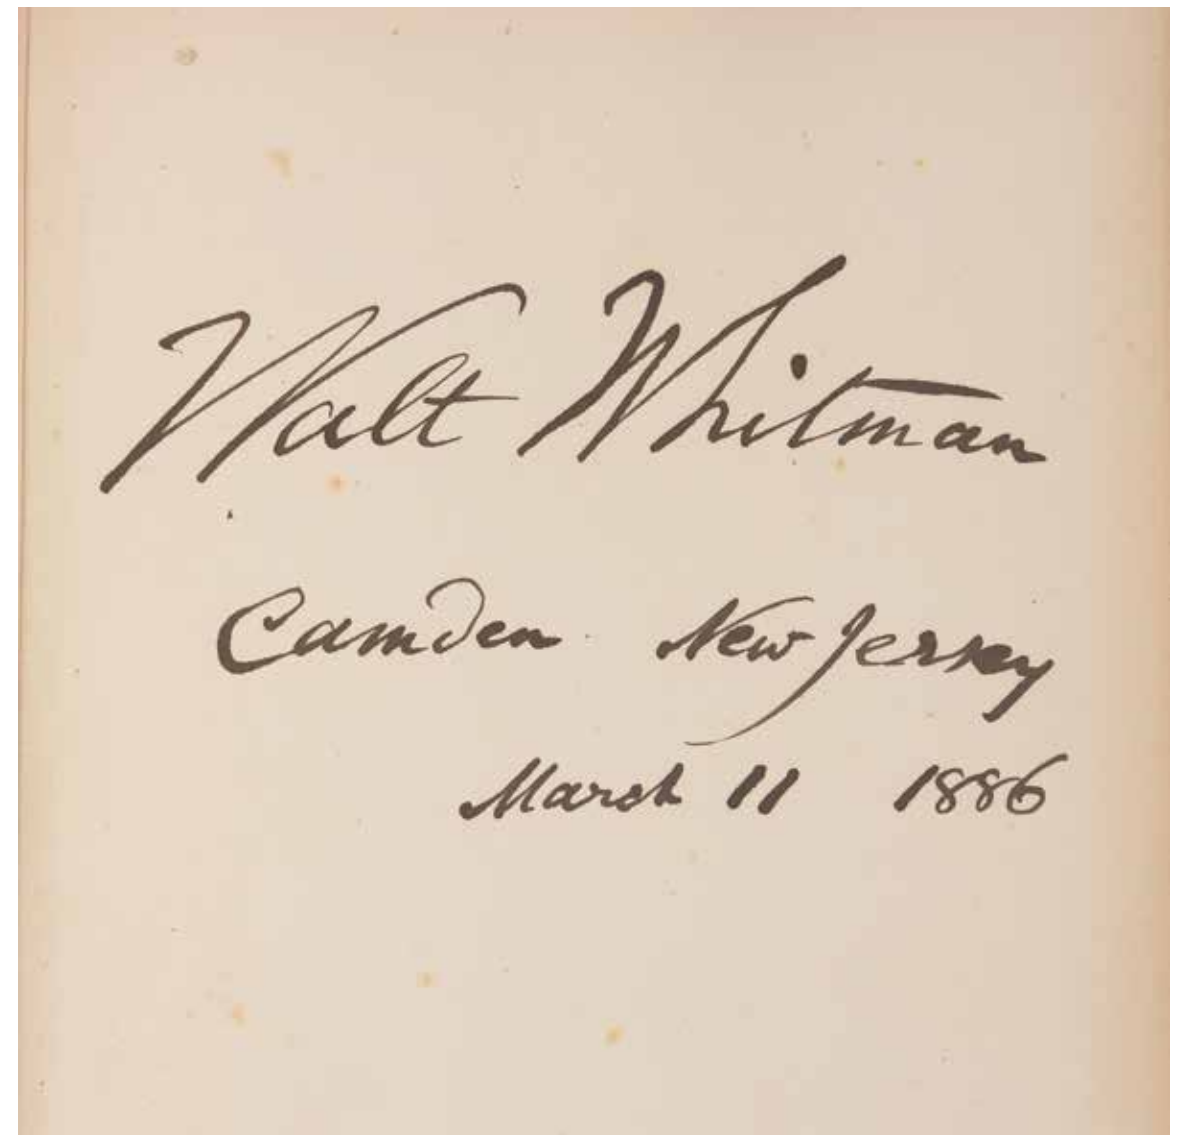 Walt Whitman
Camden New Jersey
March 11 1886